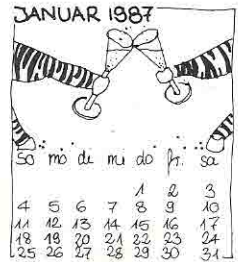 JANUAR 1987
So mo di mi do fr. sa
1 2 3
4 5 6 7 8 9 10
11 12 13 14 15 16 17
18 19 20 21 22 23 24
25 26 27 28 29 30 31